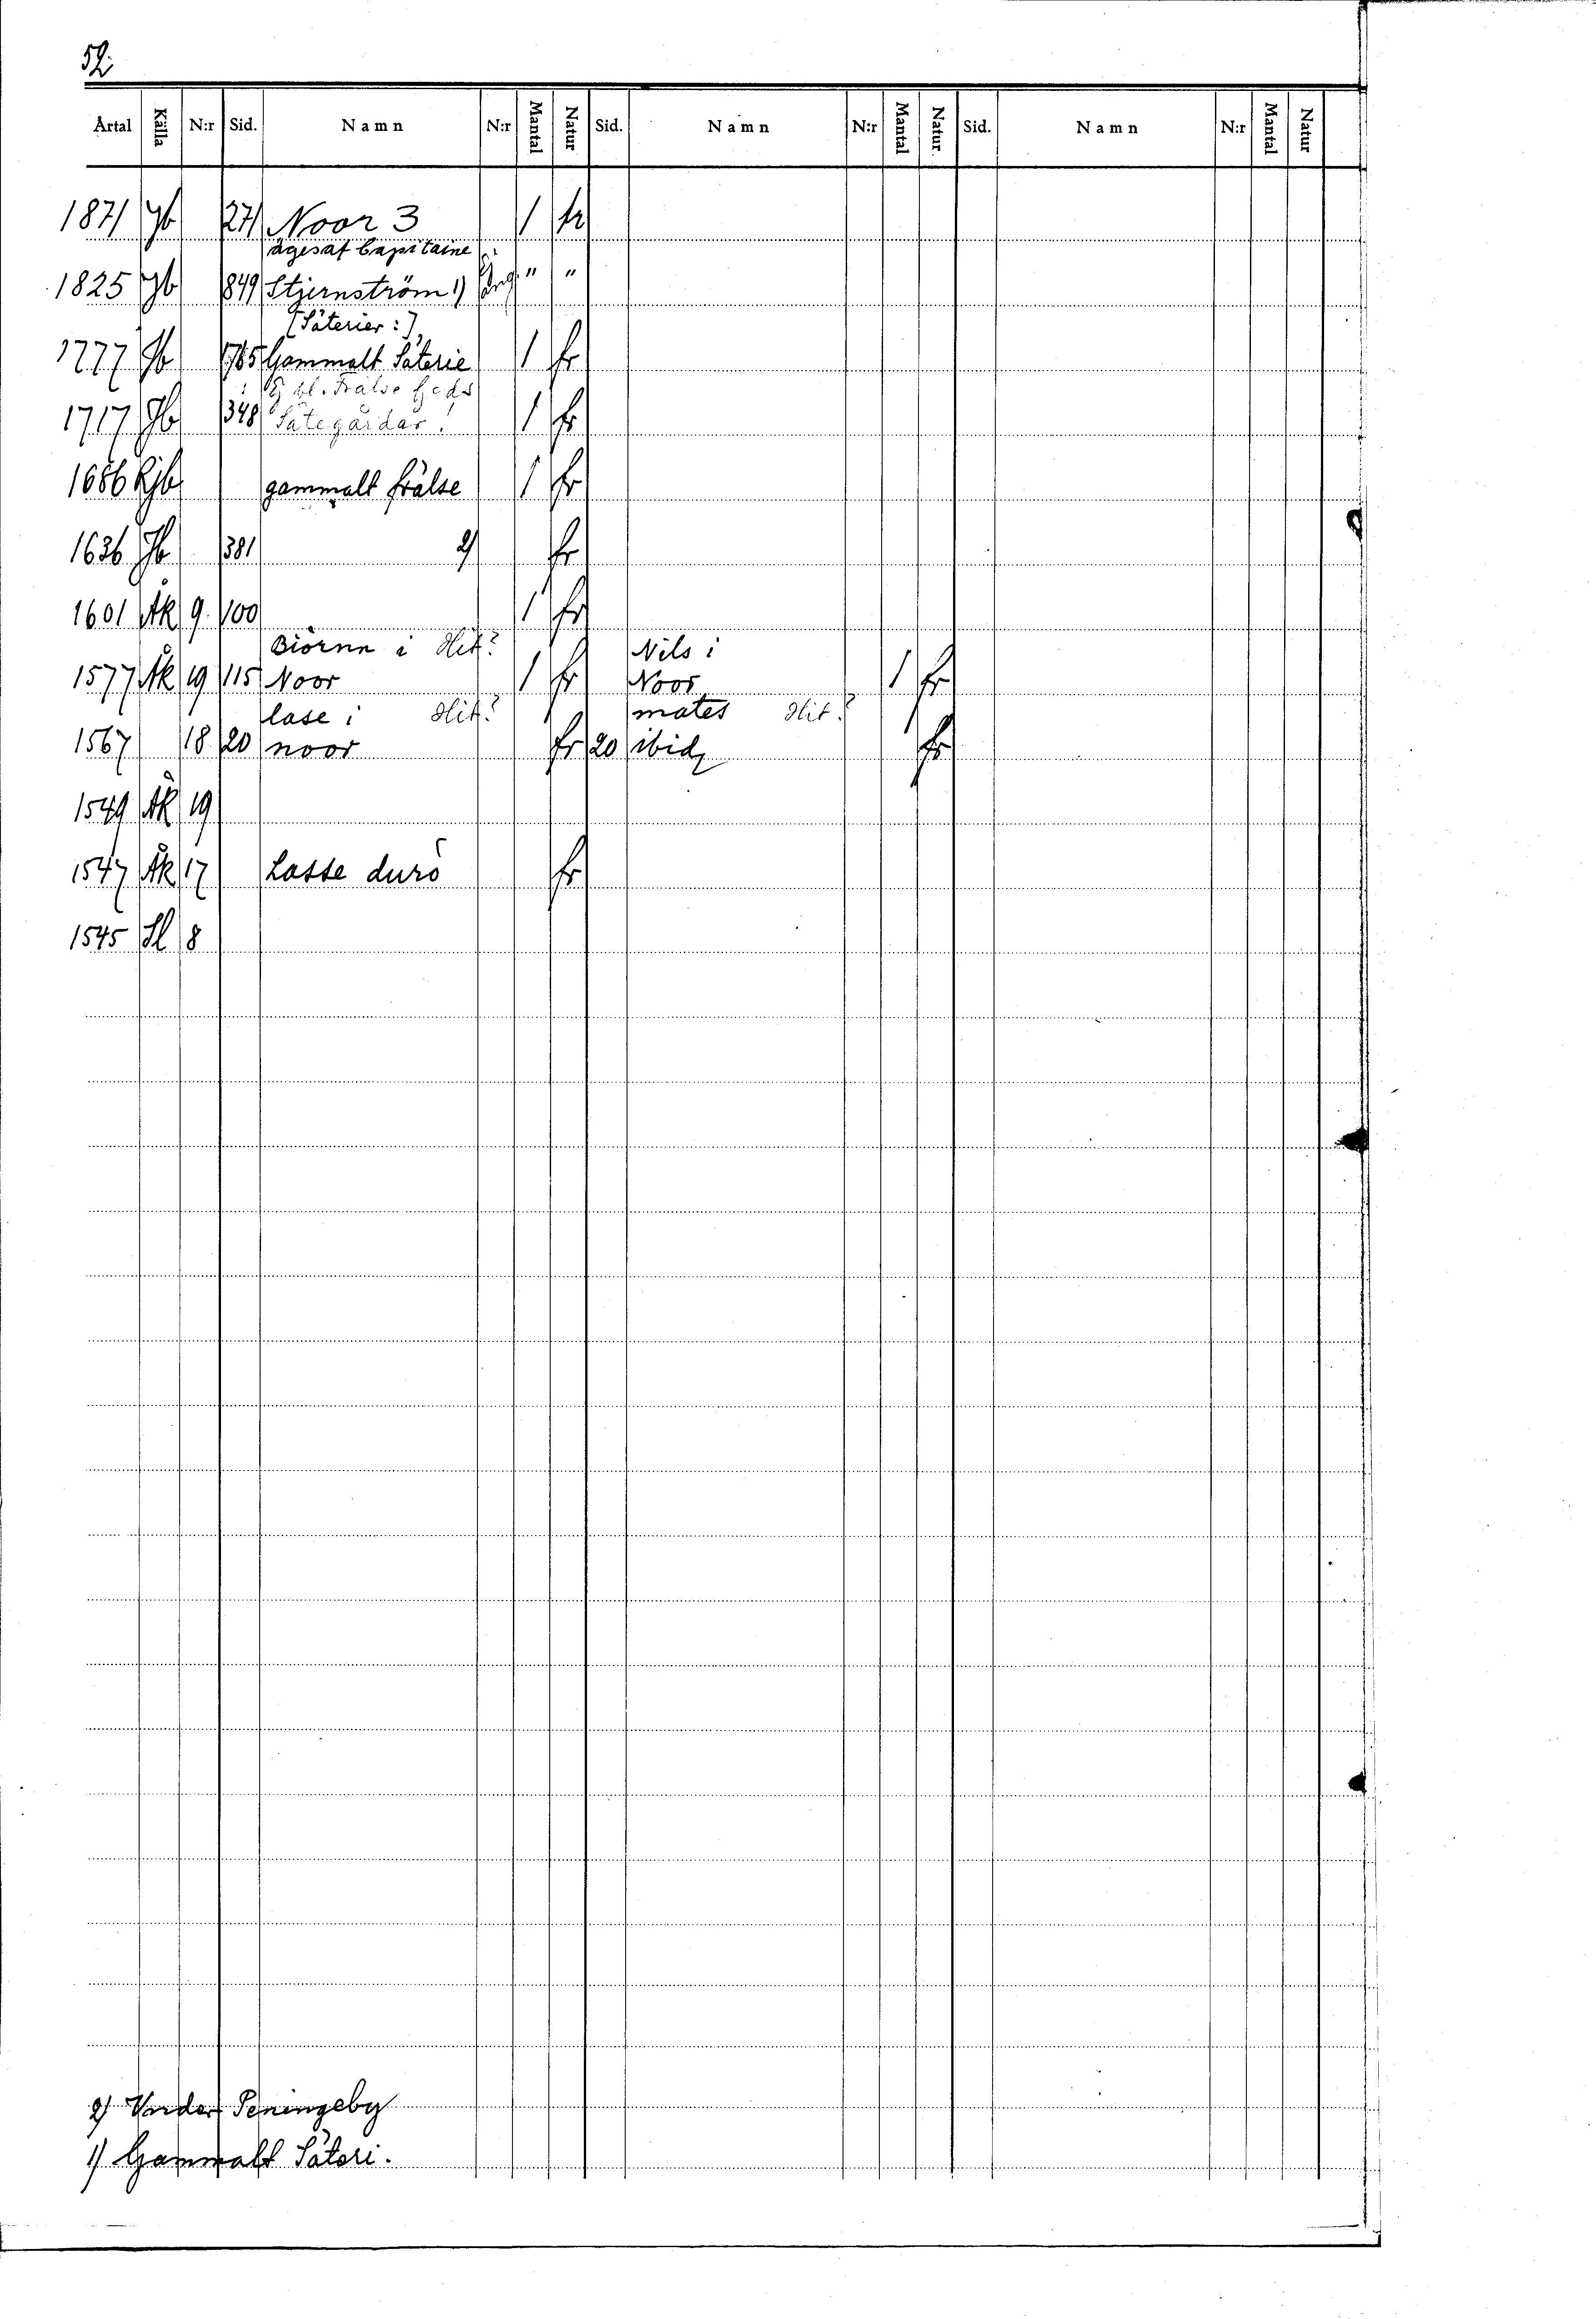 52.
Årtal Källa N:r Sid. Namn N:r Mantal Natur Sid. Namn N:r Mantal Natur Sid. Namn N:r Mantal Natur
1871 Jb 271 Noor 3 1 fr
äges af Capitaine
1825 Jb 849 Stjernström 1) " "
[Säterier:]
1777 Jb 1765 Gammalt Säterie 1 fr
bl. Frälse
1717 Jb 348 Sätegårdar! 1 fr
1686 Rjb gammalt frälse 1 fr
1636 Jb 381 2) fr
1601 Åk 9 100 1 fr
Biörnn i Hit? Nils i
1577 Åk 19 115 Noor 1 fr Noor 1 fr
lase i Hit? mates Hit?
1567 18 20 noor fr 20 ibid fr
1549 Åk 19
1547 Åk 17 Lasse durö fr
1545 Sl 8
2) Vnder Peningeby
1) Gammalt Säteri.